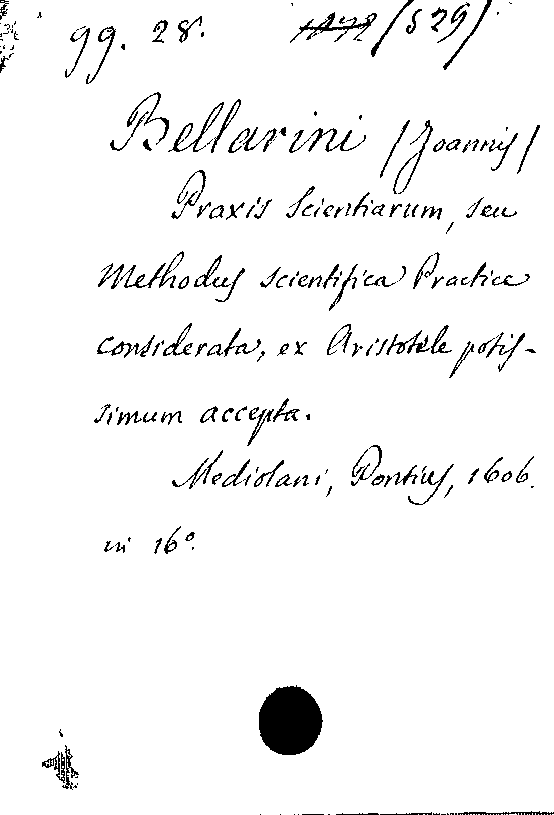 gg. 28. 1872 (529)
Bellarini (Joannis)
Praxis Scientiarum, seu
Methodus scientifica Practice
considerata, ex Aristotele potis-
simum accepta.
Mediolani, Pontius, 1606.
in 16º.